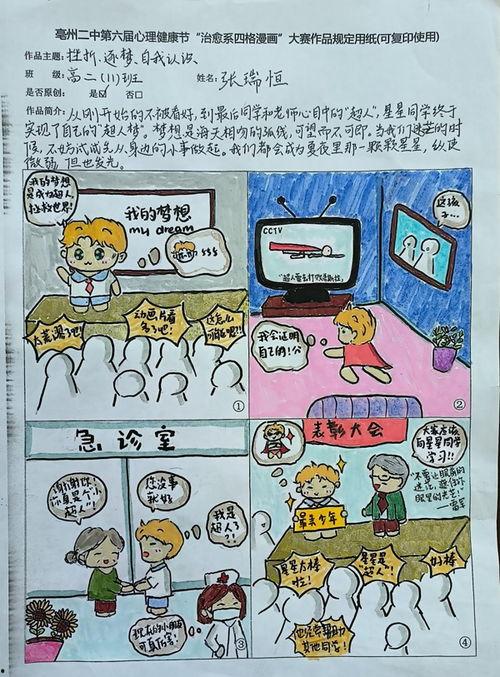 亳州二中第六届心理健康节“治愈系四格漫画”大赛作品规定用纸(可复印使用)
作品主题: 挫折、逐梦、自我认识
班 级: 高二(11)班 姓名: 张瑞恒
是否原创: 是☑ 否□
作品简介: 从刚开始的不被看好,到最后同学和老师心目中的“超人”,星星同学终于
实现了自己的“超人梦”。梦想是海天相吻的弧线,可望而不可即。当我们迷茫的时
候,不妨试试先从身边的小事做起。我们都会成为夏夜里那一颗颗星星,纵使
微弱,但也发光。
我的梦想
是成为超人,
拯救世界!
我的梦想
my dream
555
太荒谬了吧!
动画片看
多了吧!
①
CCTV
这孩
子…
我会证明
自己的!
②
急诊室
谢谢你,
你真是个小
超人!
您没事
就好
我是
超人了
?!
现在的小朋友
可真厉害!
③
表彰大会
大家应该
向星星同学
学习!!
眼里的光芒!
最美少年
星星太棒
啦!
星星是
“超人”!
好棒
他经常帮助
其他同学!
④